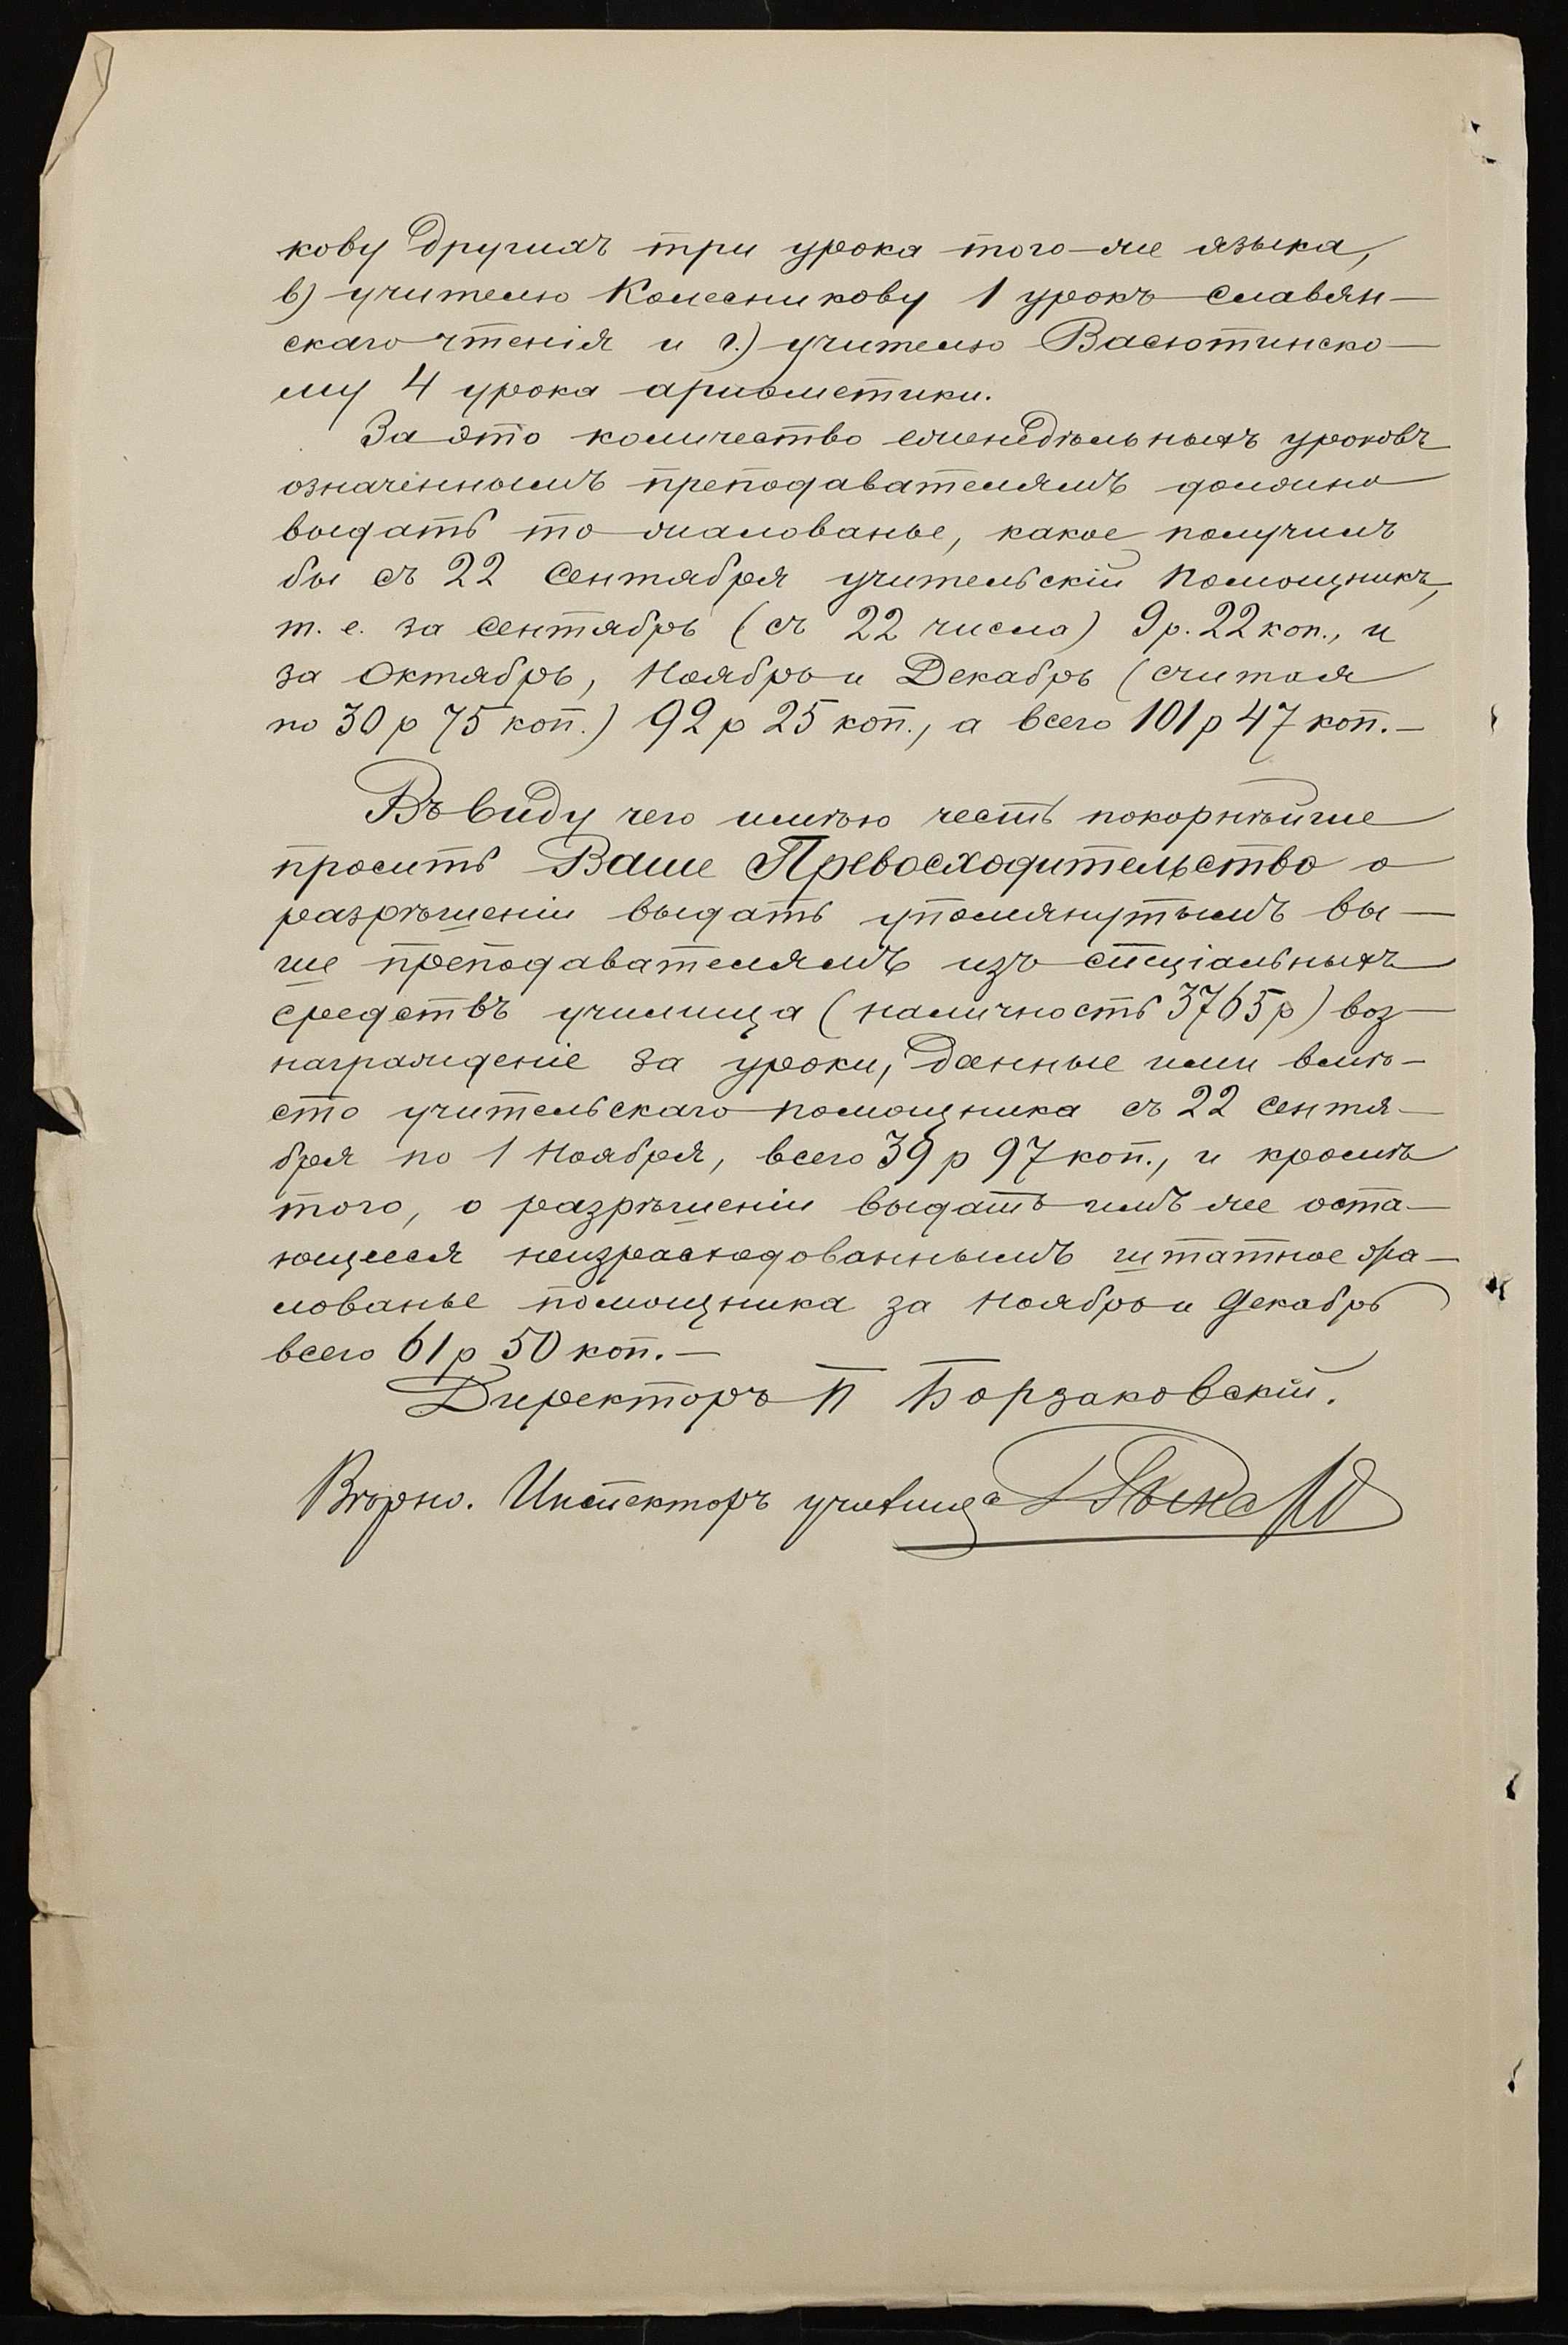 кову другихъ три урока того-же языка,
в) учителю Колесникову 1 урокъ славян-
скаго чтенія и г.) учителю Васютинско-
му 4 урока ариѳметики.
За это количество еженедѣльныхъ уроковъ
означеннымъ преподавателямъ должно
выдать то жалованье, какое получилъ
бы съ 22 Сентября учительскій помощникъ,
т. е. за Сентябрь (съ 22 числа) 9 р. 22 коп., и
за Октябрь, Ноябрь и Декабрь (считая
по 30 р 75 коп.) 92 р 25 коп., а всего 101 р 47 коп.—
Въ виду чего имѣю честь покорнѣйше
просить Ваше Превосходительство о
разрѣшеніи выдать упомянутымъ вы-
ше преподавателямъ изъ спеціальныхъ
средствъ училища (наличность 3765 р) воз-
награжденіе за уроки, данные ими вмѣ-
сто учительскаго помощника съ 22 Сентя-
бря по 1 Ноября, всего 39 р 97 коп., и кромѣ
того, о разрѣшеніи выдать имъ же оста-
ющееся неизрасходованнымъ штатное жа-
лованье помощника за Ноябрь и Декабрь
всего 61 р 50 коп.—
Директоръ П Борзаковскій.
Вѣрно. Инспекторъ училища